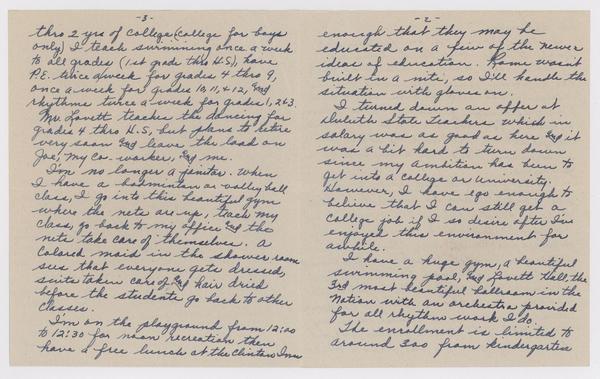 -3-
thro 2 yrs of college (college for boys
only) I teach swimming once a week
to all grades (1st grade thro H.S.), have
P.E. twice a week for grades 4 thro 9,
once a week for grades 10, 11, & 12, and
rhythms twice a week for grades 1, 2 & 3.
Mr Lovett teaches the dancing for
grades 4 thro H.S, but plans to retire
very soon and leave the load on
Joe, my co-worker, and me.
I'm no longer a janitor. When
I have a badminton or volley ball
class, I go into this beautiful gym
where the nets are up, teach my
class, go back to my office and the
nets take care of themselves. A
colored maid in the shower room
sees that everyone gets dressed,
suits taken care of and hair dried
before the students go back to other
classes.
I'm on the playground from 12:00
to 12:30 for noon recreation then
have a free lunch at the Clinton Inn
-2-
enough that they may be
educated on a few of the newer
ideas of education. Rome wasn't
built in a nite, so I'll handle the
situation with gloves on.
I turned down an offer at
Duluth State Teachers which in
salary was as good as here and it
was a bit hard to turn down
since my ambition has been to
get into a college or university.
However, I have ego enough to
believe that I can still get a
college job if I so desire after I've
enjoyed this environment for
awhile.
I have a huge gym, a beautiful
swimming pool, and Lovett Hall, the
3rd most beautiful ballroom in the
Nation with an orchestra provided
for all rhythm work I do.
The enrollment is limited to
around 300 from kindergarten